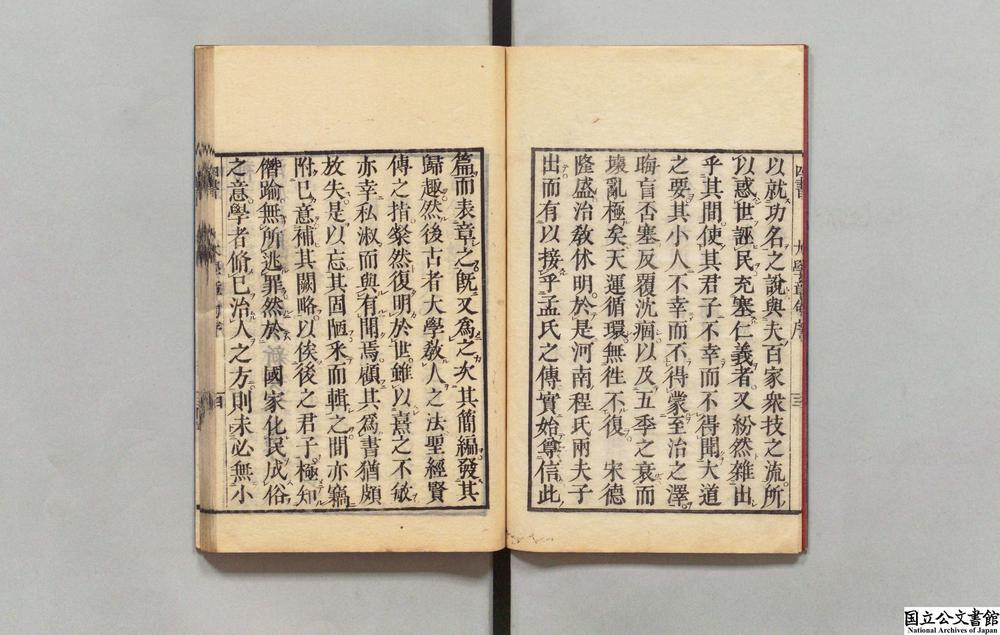 四書
大學章句序
三
以就功名之說與夫百家衆技之流所
以惑世誣民充塞仁義者又紛然雜出
乎其間使其君子不幸而不得聞大道
之要其小人不幸而不得蒙至治之澤
晦盲否塞反覆沈痼以及五季之衰而
壞亂極矣天運循環無徃不復 宋德
隆盛治敎休明於是河南程氏兩夫子
出而有以接乎孟氏之傳實始尊信此
篇而表章之旣又爲之次其簡編發其
歸趣然後古者大學敎人之法聖經賢
傳之指粲然復明於世雖以熹之不敏
亦幸私淑而與有聞焉顧其爲書猶頗
放失是以忘其固陋釆而輯之間亦竊
附己意補其闕略以俟後之君子極知
僭踰無所逃罪然於 國家化民成俗
之意學者脩己治人之方則未必無小
四書
国立公文書館
National Archives of Japan